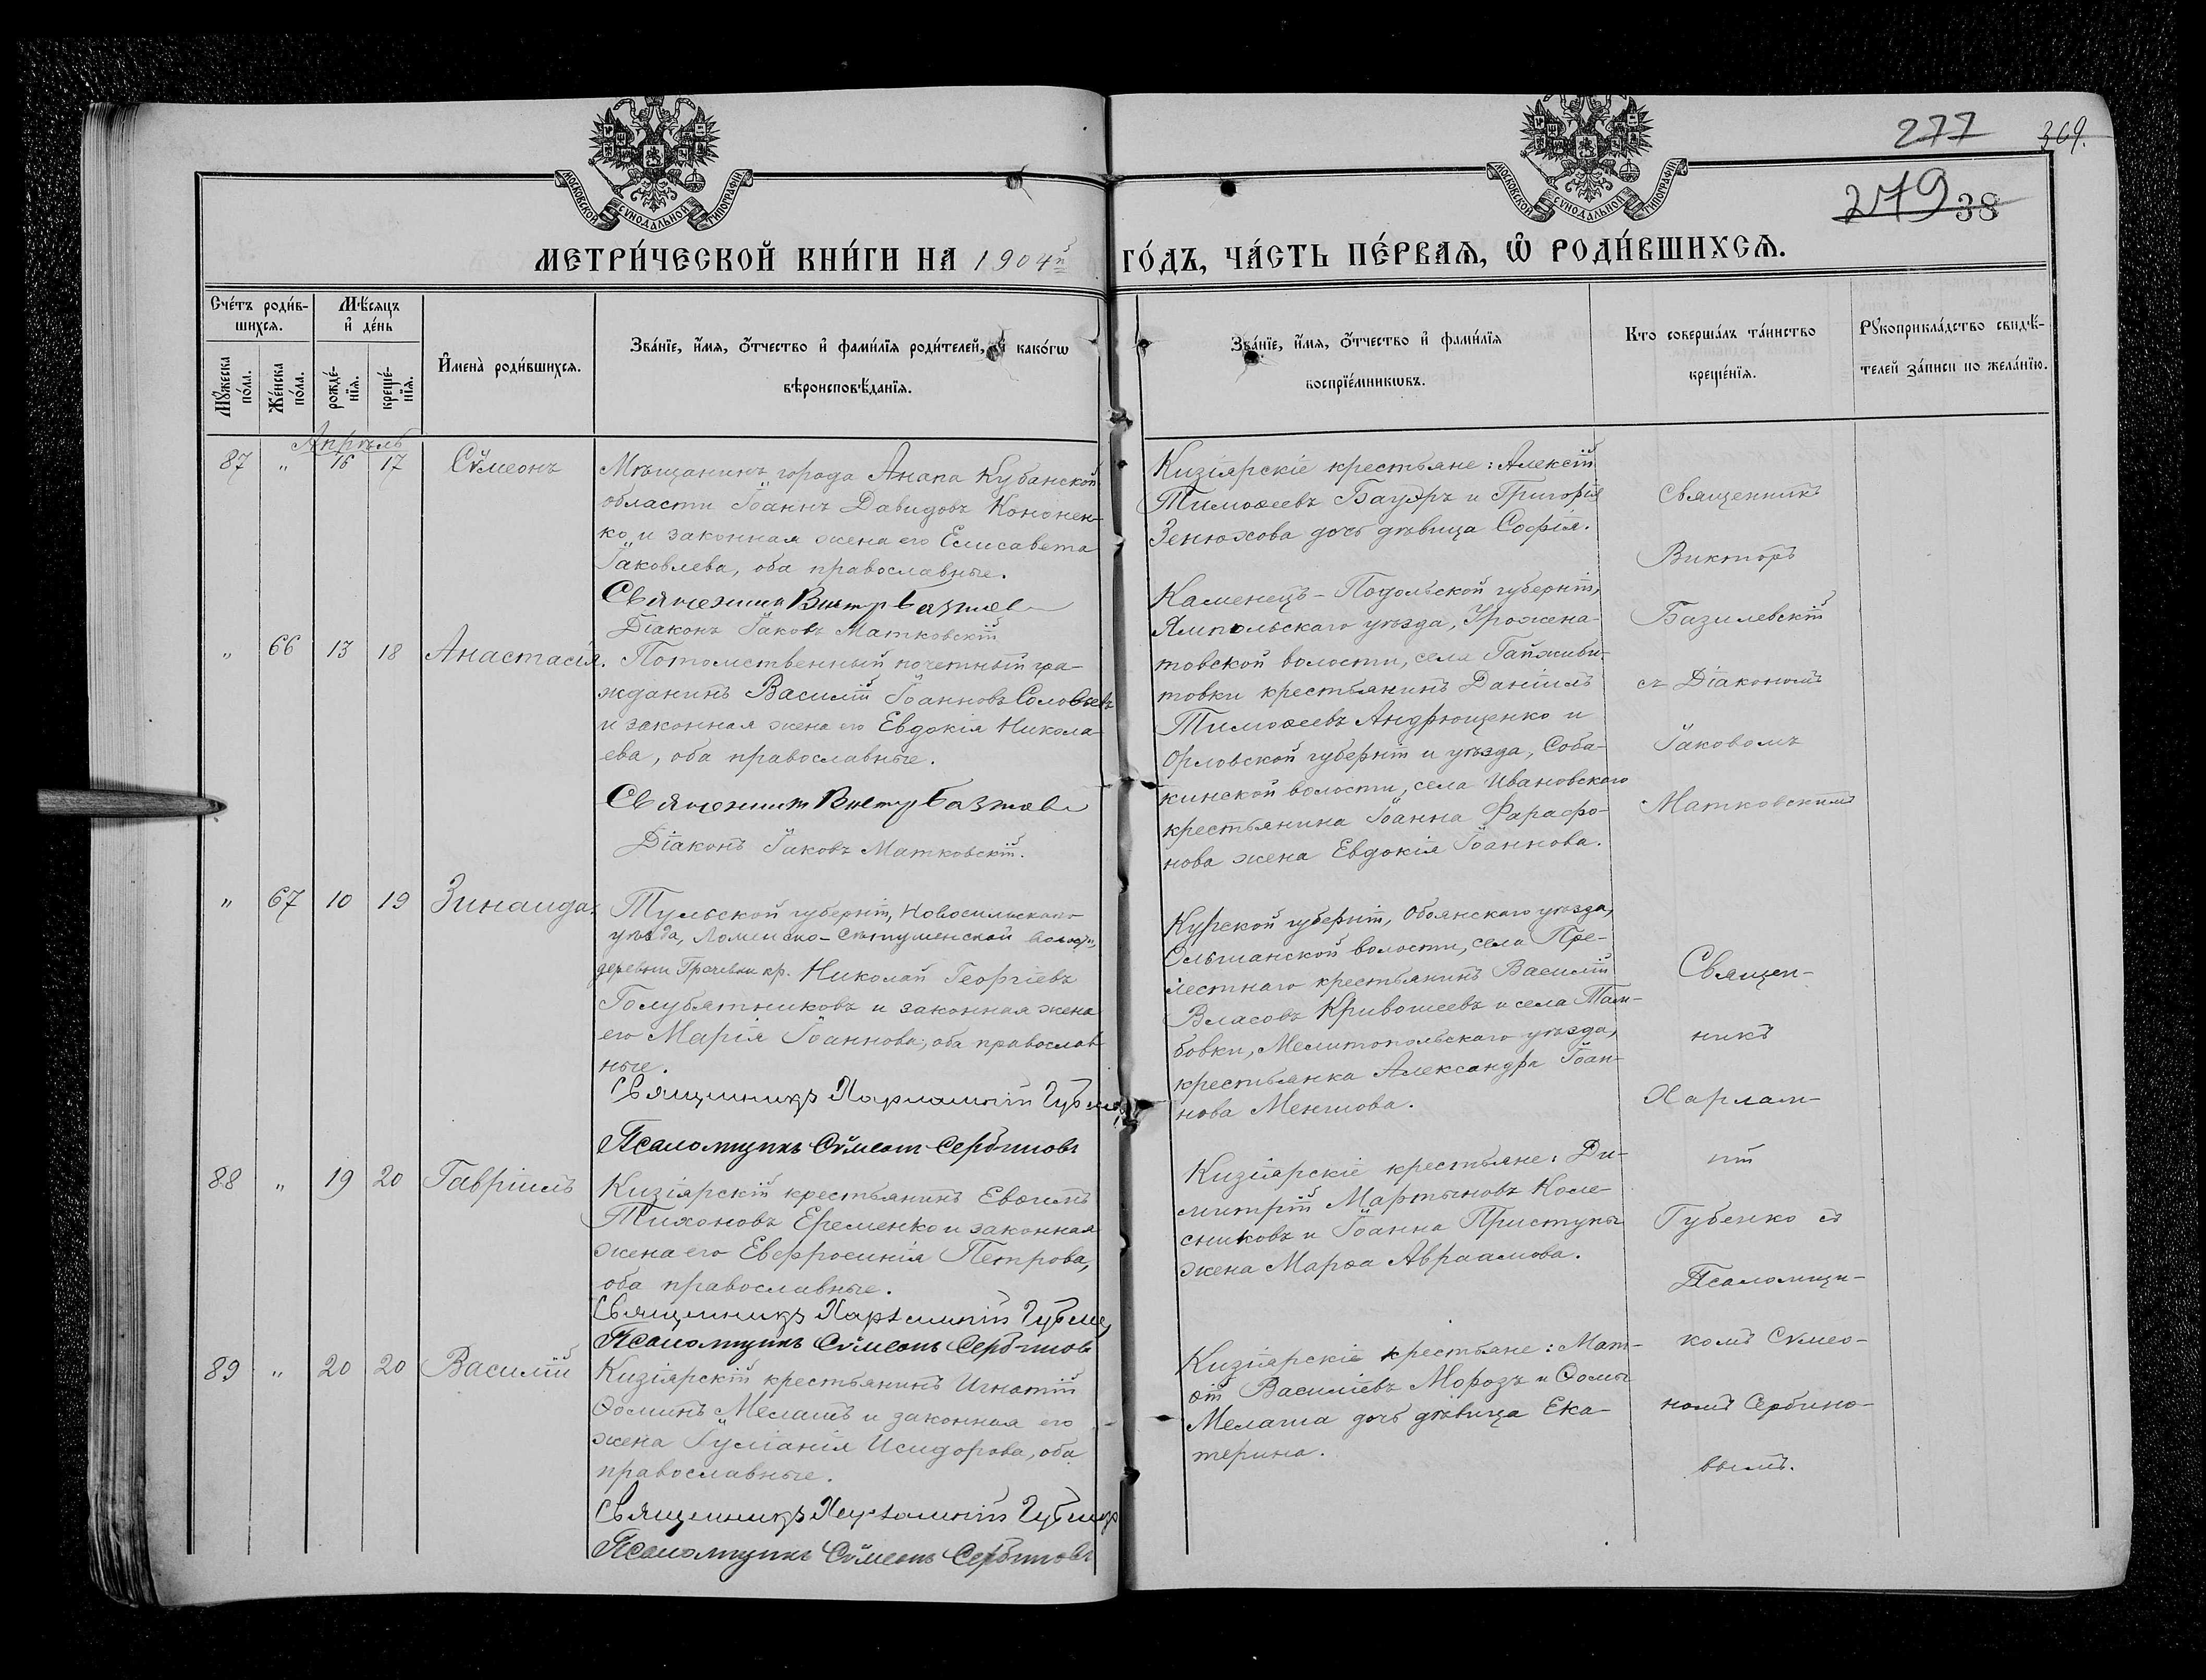 277
369.
279 38
МОСКОВСКОЙ СѴНОДАЛЬНОЙ ТИПОГРАФІИ
МОСКОВСКОЙ СѴНОДАЛЬНОЙ ТИПОГРАФІИ
МЕТРИ́ЧЕСКОЙ КНИ́ГИ НА 1904й ГО́ДЪ, ЧА́СТЬ ПЕ́РВАѦ, Ѡ҆ РОДИ́ВШИХСѦ.
Сче́тъ роди́в-
шихсѧ.
Мѣ́сѧцъ
и҆ де́нь
Мꙋ́жеска
по́ла.
Же́нска
по́ла.
рожде́-
нїѧ.
креще́-
нїѧ.
И҆мена̀ роди́вшихсѧ.
Зва́нїе, и҆́мѧ, ѻ҆́тчество и҆ фами́лїѧ роди́телей, и҆ како́гѡ
вѣроисповѣ́данїѧ.
Зва́нїе, и҆́мѧ, ѻ҆́тчество и҆ фами́лїѧ
воспрїе́мникѡвъ.
Кто соверша́лъ та́инство
креще́нїѧ.
Рꙋкоприкла́дство свидѣ́-
телей за́писи по жела́нїю.
Апрѣль
87 " 16 17 Сѵмеонъ
Мѣщанинъ города Анапа Кубанской
области Іоаннъ Давидовъ Кононен-
ко и законная жена его Елисавета
Іаковлева, оба православные.
Священникъ Викт
Діаконъ Іаковъ Матковскій
Кизіярскіе крестьяне: Алексій
Тимоѳеевъ Бауэръ и Григорія
Зенюхова дочь дѣвица Софія.
Священникъ
Викторъ
Базилевскій
съ Діакономъ
Іаковомъ
Матковскимъ
" 66 13 18 Анастасія.
Потомственный почетный гра-
жданинъ Василій Іоанновъ Соловьевъ
и законная жена его Евдокія Никола-
ева, оба православные.
Священникъ Викт
Діаконъ Іаковъ Матковскій.
Каменецъ-Подольской губерніи,
Ямпольскаго уѣзда,
товской волости, села
товки крестьянинъ Даніилъ
Тимоѳеевъ Андрющенко и
Орловской губерніи и уѣзда, Соба-
кинской волости, села Ивановскаго
крестьянина Іоанна Фарафо-
нова жена Евдокія Іоаннова.
" 67 10 19 Зинаида.
Тульской губерніи, Новосильскаго
уѣзда, волости,
деревни Грачевки кр. Николай Георгіевъ
Голубятниковъ и законная жена
его Марія Іоаннова, оба православ-
ные.
Священникъ Харлампій Губенко
Псаломщикъ Сѵмеонъ Сербиновъ
Курской губерніи, Обоянскаго уѣзда,
Ольшанской волости, села Пре-
лестнаго крестьянинъ Василій
Власовъ Кривошеевъ и села Там-
бовки, Мелитопольскаго уѣзда,
крестьянка Александра Іоан-
нова Меншова.
Священ-
никъ
Харлам-
пій
Губенко съ
Псаломщи-
комъ Сѵмео-
номъ Сербино-
вымъ.
88 " 19 20 Гавріилъ
Кизіярскій крестьянинъ Евѳимъ
Тихоновъ Еременко и законная
жена его Евфросинія Петрова,
оба православные.
Священникъ Харлампій Губенко
Псаломщикъ Сѵмеонъ Сербиновъ
Кизіярскіе крестьяне: Ди-
митрій Мартыновъ Коле-
сниковъ и Іоанна Приступы
жена Марѳа Авраамова.
89 " 20 20 Василій
Кизіярскій крестьянинъ Игнатій
Ѳоминъ Мелашъ и законная его
жена Іуліанія Исидорова, оба
православные.
Священникъ Харлампій Губенко
Псаломщикъ Сѵмеонъ Сербиновъ
Кизіярскіе крестьяне: Мат-
ѳій Василіевъ Морозъ и Ѳомы
Мелаша дочь дѣвица Ека-
терина.